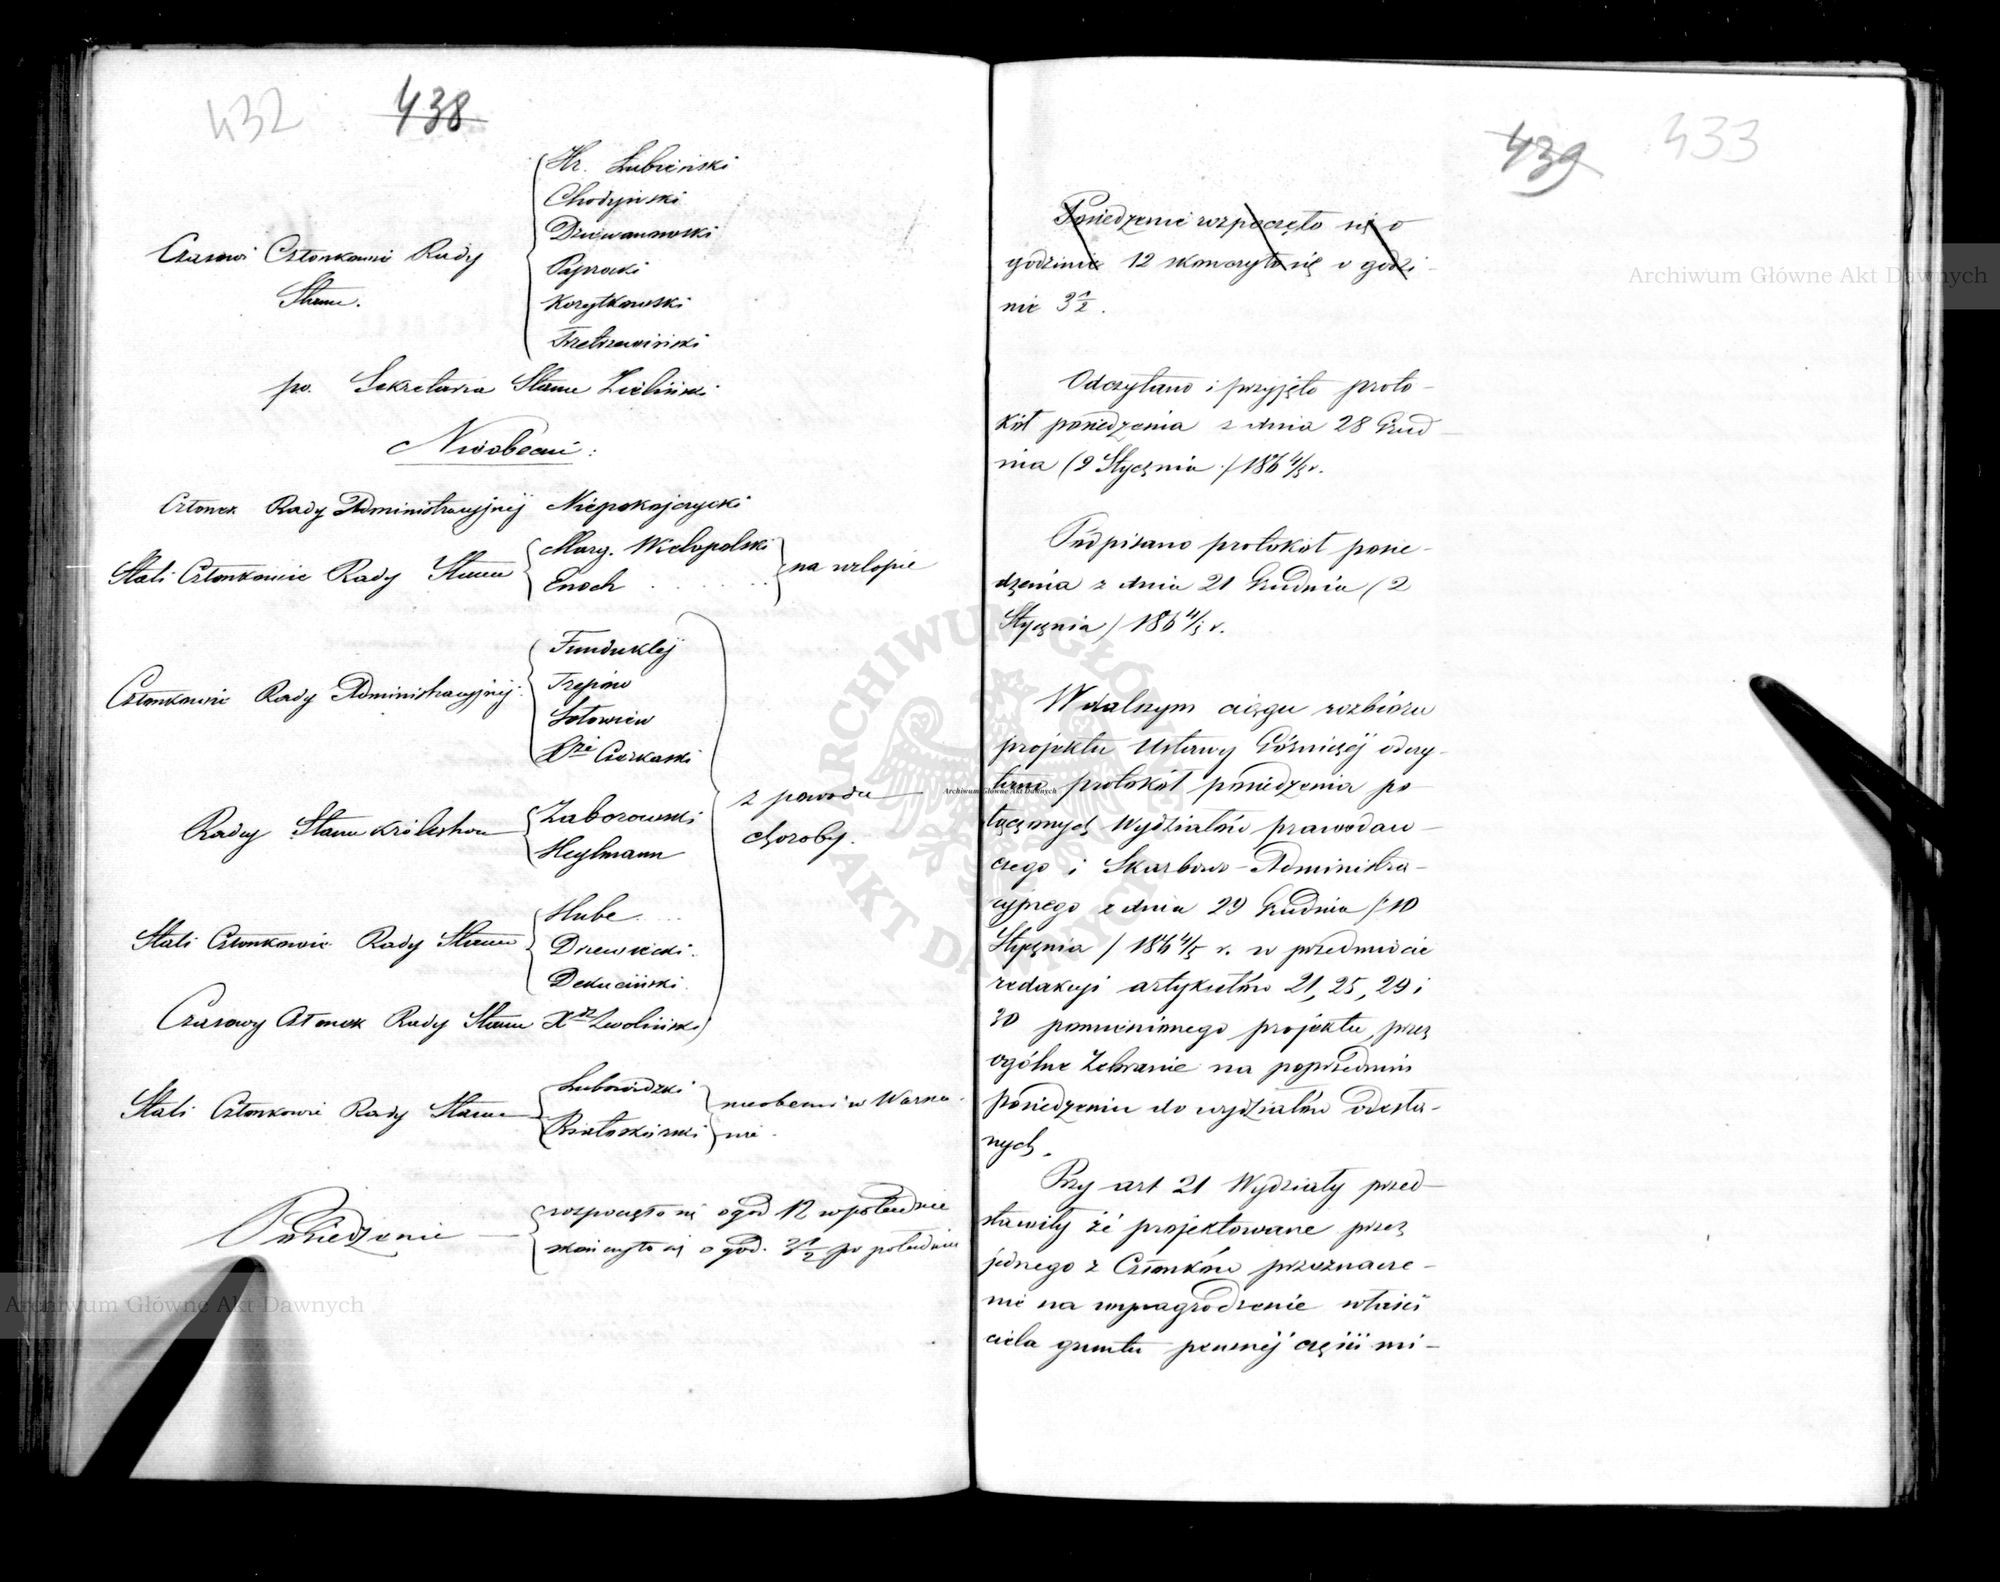 432 438
Hr. Łubieński
Chodyński
Dziewanowski
Czasowi Członkowie Rady
Paprocki
Stanu.
Korytkowski
Trzetrzewiński
po. Sekretarza Stanu Zieliński
Nieobecni:
Członek Rady Administracyjnéj Niepokojczycki
Stali Członkowie Rady Stanu
Marg. Wielopolski
Enoch
na urlopie
Funduklej
Członkowie Rady Administracyjnéj:
Trepow
Sołowiew
Xże Czerkaski
Radcy Stanu Królestwa
Zaborowski
Heylmann
z powodu
choroby.
Stali Członkowie Rady Stanu
Hube
Drzewiecki.
Dekuciński.
Czasowy Członek Rady Stanu Xdz Zwoliński
Stali Członkowie Rady Stanu
Lubowidzki
Białoskórski
nieobecni w Warsza-
wie.
Posiedzenie
rozpoczęto się o god 12 w południe
skończyło się o god. 3 1/2 po południu
439 433
Posiedzenie rozpoczęło się o
godzinie 12 skończyło się o godzi-
nie 3 1/2.
Odczytano i przyjęto proto-
kół posiedzenia z dnia 28 Grud-
nia (9 Stycznia) 186 4/5 r.
Podpisano protokół posie-
dzenia z dnia 21 Grudnia (2
Stycznia) 186 4/5 r.
W dalszym ciągu rozbioru
projektu Ustawy Górniczéj odczy-
tano protokół posiedzenia po-
łączonych Wydziałów prawodaw-
czego i Skarbowo-Administra-
cyjnego z dnia 29 Grudnia (10
Stycznia) 186 4/5 r. w przedmiocie
redakcyi artykułów 21, 25, 29 i
30 pomienionego projektu, przez
ogólne Zebranie na poprzedniem
posiedzeniu do wydziałów odesła-
nych.
Przy art 21 Wydziały przed-
stawiły że projektowane przez
jednego z Członków przeznacze-
nie na wynagrodzenie właści
ciela gruntu pewnéj części mi-
Archiwum Główne Akt Dawnych
Archiwum Główne Akt Dawnych
Archiwum Główne Akt Dawnych
ARCHIWUM GŁÓWNE AKT DAWNYCH